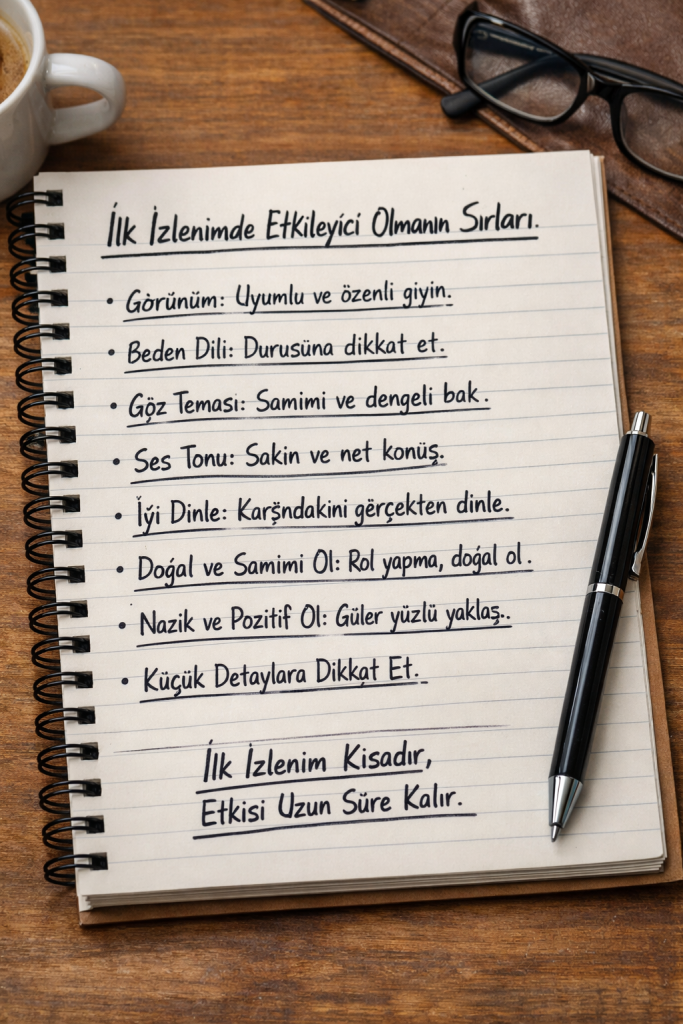 İlk İzlenimde Etkileyici Olmanın Sırları.
• Görünüm: Uyumlu ve özenli giyin.
• Beden Dili: Durusüna dikkat et.
• Göz Teması: Samimi ve dengeli bak.
• Ses Tonu: Sakin ve net konüş.
• İyi Dinle: Karşndakini gërçekten dinle.
• Doğal ve Samimi Ol: Rol yapma, doğal ol.
• Nazik ve Pozitif Ol: Güler yüzlü yaklaş..
• Küçük Detaylara Dikkat Et.
İlk İzlenim Kisadır,
Etkisi Uzun Süre Kalır.